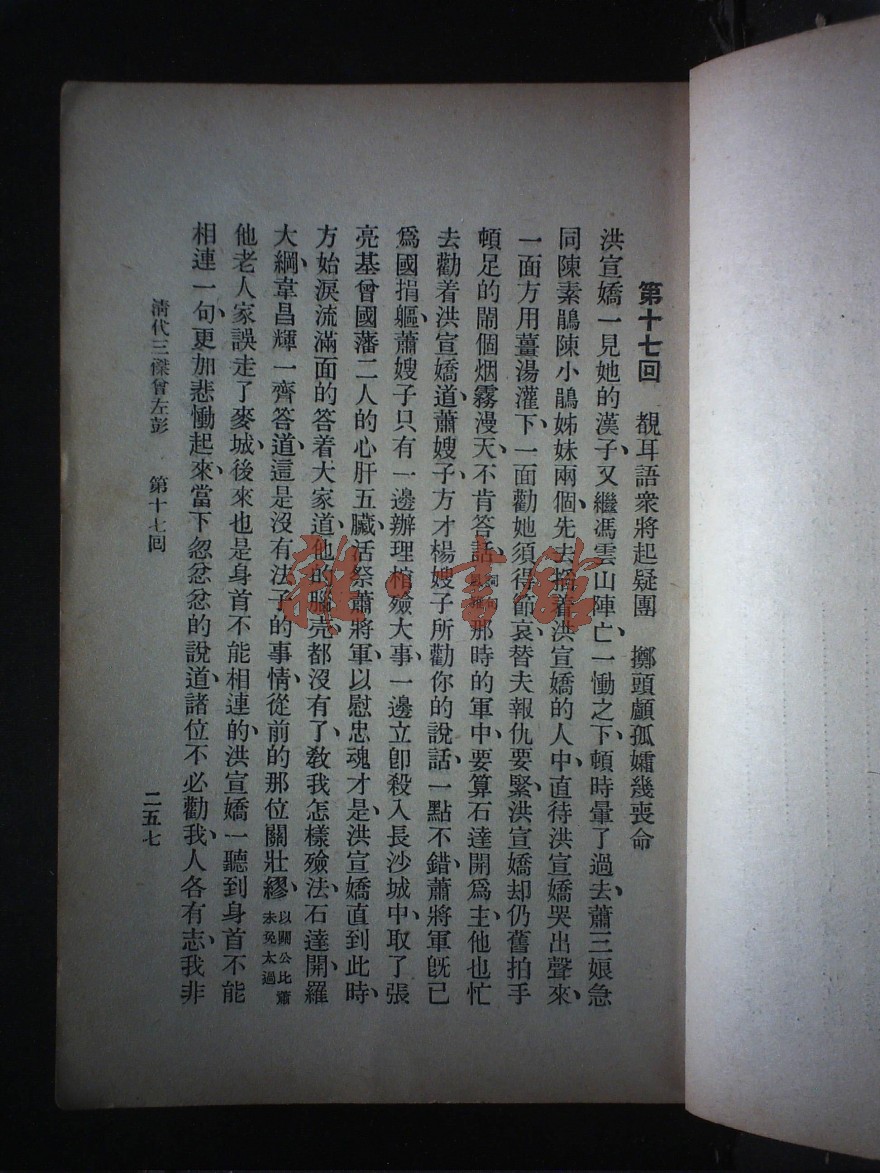 第十七回　覩耳語衆將起疑團　擲頭顱孤孀幾喪命
洪宣嬌一見她的漢子、又繼馮雲山陣亡、一慟之下、頓時暈了過去、蕭三娘急
同陳素鵑陳小鵑姊妹兩個、先去搯着洪宣嬌的人中、直待洪宣嬌哭出聲來、
一面方用薑湯灌下、一面勸她須得節哀、替夫報仇要緊、洪宣嬌却仍舊拍手
頓足的鬧個烟霧漫天、不肯答話、那時的軍中、要算石達開爲主、他也忙
去勸着洪宣嬌道、蕭嫂子、方才楊嫂子所勸你的說話、一點不錯、蕭將軍旣已
爲國捐軀、蕭嫂子只有一邊辦理棺殮大事、一邊立卽殺入長沙城中、取了張
亮基曾國藩二人的心肝五臟、活祭蕭將軍、以慰忠魂才是、洪宣嬌直到此時、
方始淚流滿面的答着大家道、他的腦壳、都沒有了、敎我怎樣殮法、石達開、羅
大綱、韋昌輝一齊答道、這是沒有法子的事情、從前的那位關壯繆、以關公比蕭未免太過
他老人家誤走了麥城、後來也是身首不能相連的、洪宣嬌一聽到身首不能
相連一句、更加悲慟起來、當下忽忿忿的說道、諸位不必勸我、人各有志、我非
淸代三傑曾左彭　第十七回　二五七
雜·书館